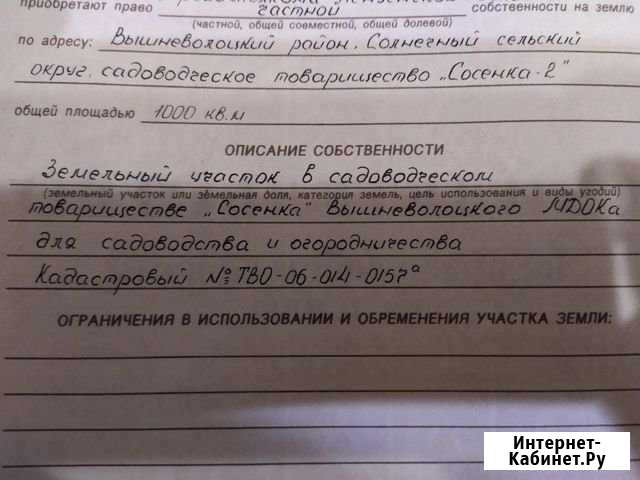 приобретают право частной собственности на землю
(частной, общей совместной, общей долевой)
по адресу: Вышневолоцкий район, Солнечный сельский
округ, садоводческое товарищество „Сосенка-2"
общей площадью 1000 кв.м
ОПИСАНИЕ СОБСТВЕННОСТИ
Земельный участок в садоводческом
(земельный участок или земельная доля, категория земель, цель использования и виды угодий)
товариществе „Сосенка" Вышневолоцкого МДОКа
для садоводства и огородничества
Кадастровый № ТВО-06-014-0157а
ОГРАНИЧЕНИЯ В ИСПОЛЬЗОВАНИИ И ОБРЕМЕНЕНИЯ УЧАСТКА ЗЕМЛИ:
Интернет-
Кабинет.Ру